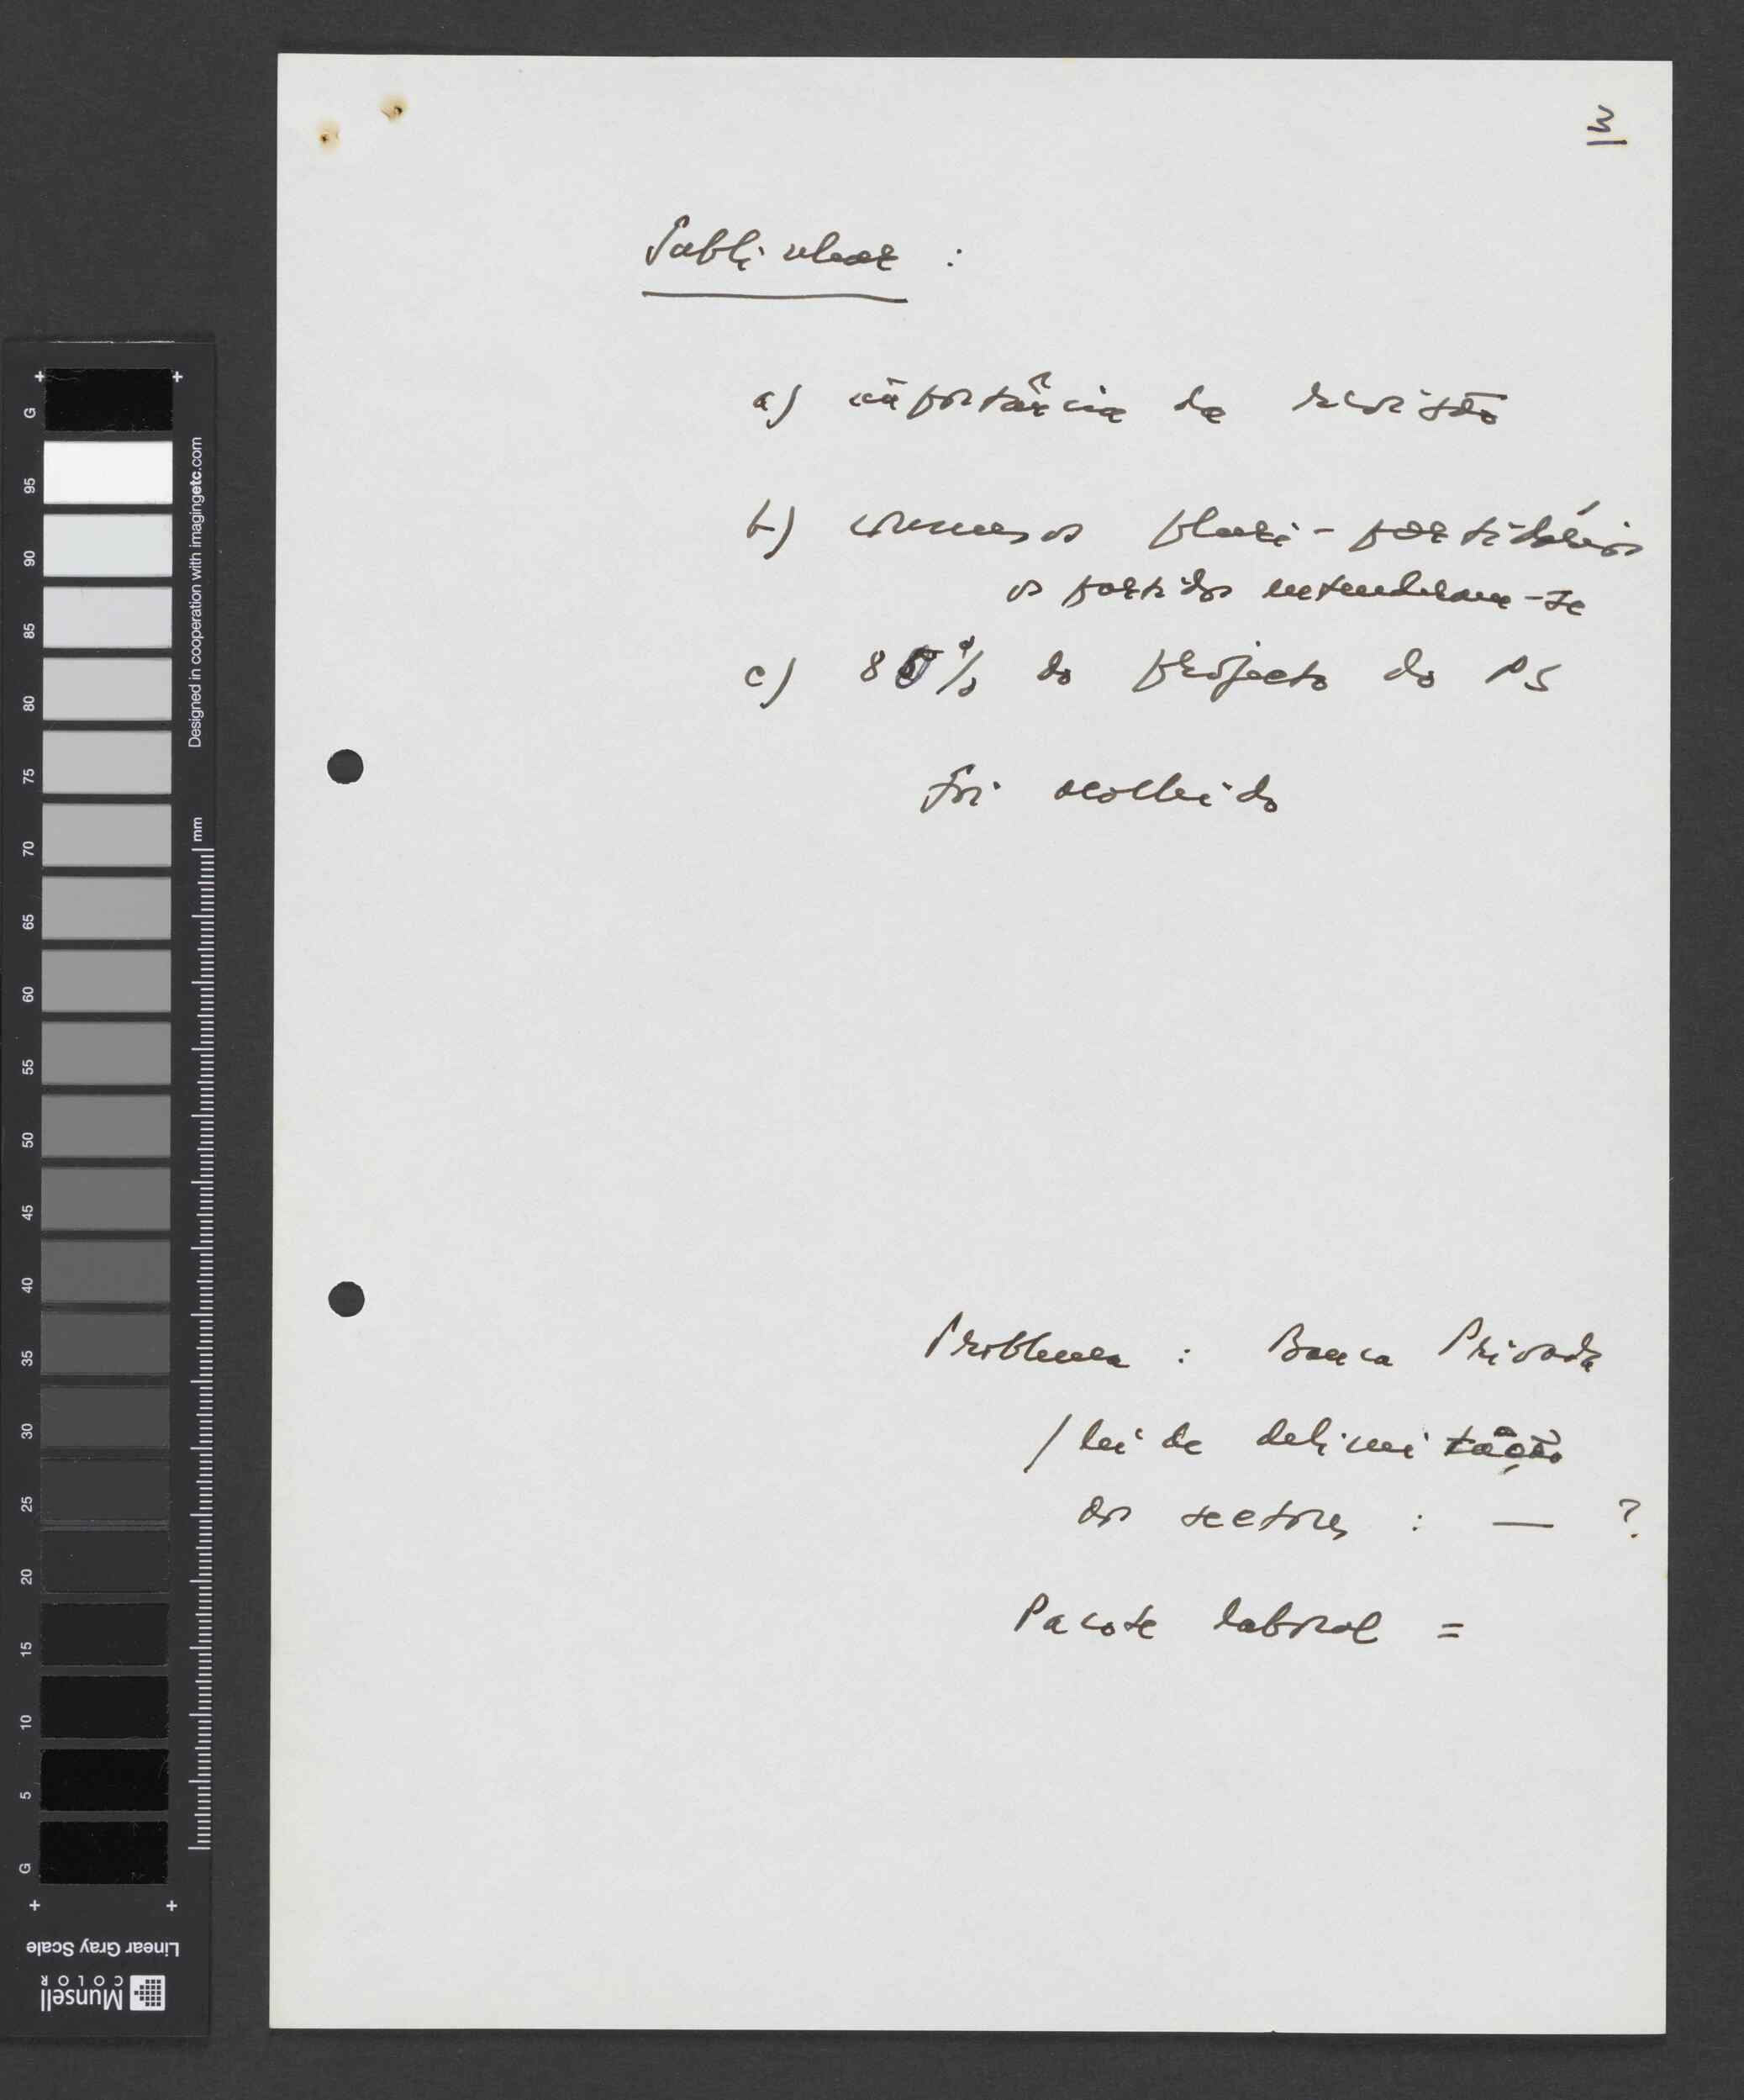 3
Sublinhar :
a) importância da revisão
b) consensos pluri-partidários
os partidos entenderam-se
c) 80% do projecto do PS
foi acolhido
Problema : Banca Privada
/ lei de delimitação
dos sectores : — ?
Pacote laboral =
G
95
90
85
80
75
70
65
60
55
50
45
40
35
30
25
20
15
10
5
G
Designed in cooperation with imagingetc.com
mm
Linear Gray Scale
Munsell
COLOR